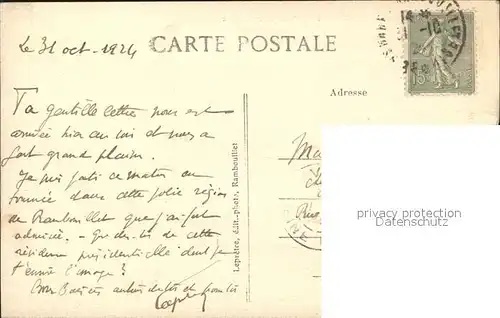 Le 31 oct. 1924
CARTE POSTALE
Adresse
Ta gentille lettre nous est
arrivée hier au soir et nous a
fait grand plaisir.
Je suis parti ce matin en
tournée dans cette jolie région
de Rambouillet que j'ai fort
admirée. - Que dis-tu de cette
résidence présidentielle dont je
t'envoie l'image?
Bons Baisers
Leprêtre, édit.-phot., Rambouillet
privacy protection
watermark